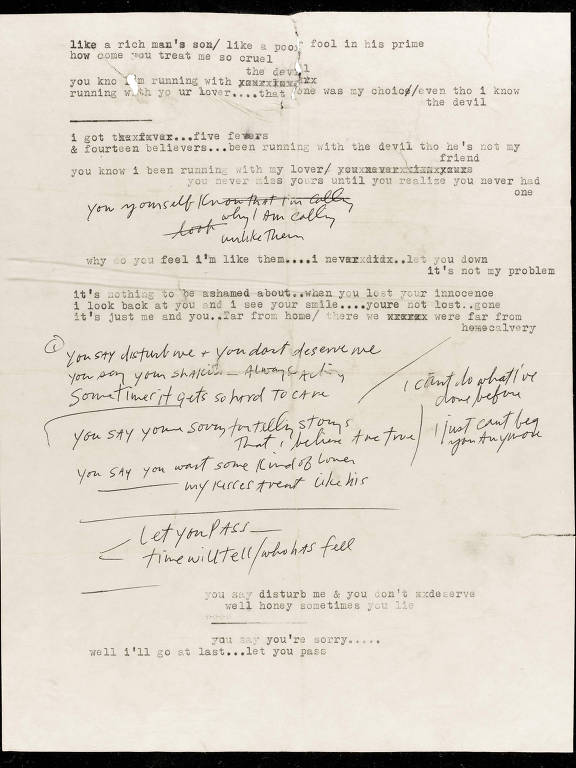 like a rich man's son/ like a poor fool in his prime
how come you treat me so cruel
the devil
you kno i'm running with
running with yo ur lover....that one was my choice//even tho i know
the devil
i got thaxfavax...five fevers
& fourteen believers...been running with the devil tho he's not my
friend
you know i been running with my lover/
you never miss yours until you realize you never had
one
you yourself know that I'm calling
look why I Am calling
unlike Them
why do you feel i'm like them....i nevarxdidx..let you down
it's not my problem
it's nothing to be ashamed about..when you lost your innocence
i look back at you and i see your smile....youre not lost..gone
it's just me and you..far from home/ there we xxxxxx were far from
homecalvery
① you SAY disturb me + you dont deserve me
you say your shakin — Always Acting
Sometimes it gets so hard to CARE
I can't do what I've
done before
you SAY your sorry for telling storys
That I believe Are true
I just cant beg
you Anymore
you SAY you want some Kind of Lover
my kisses Arent Like his
Let you PASS —
time will tell/who has fell
you say disturb me & you don't xxdeserve
well honey sometimes you lie
you say you're sorry.....
well i'll go at last...let you pass